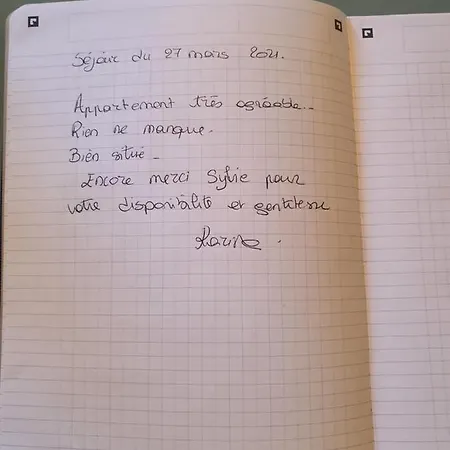 Séjour du 27 mars 2021.
Appartement très agréable.
Rien ne manque.
Bien situé.
Encore merci Sylvie pour
votre disponibilité et gentillesse
Karine.